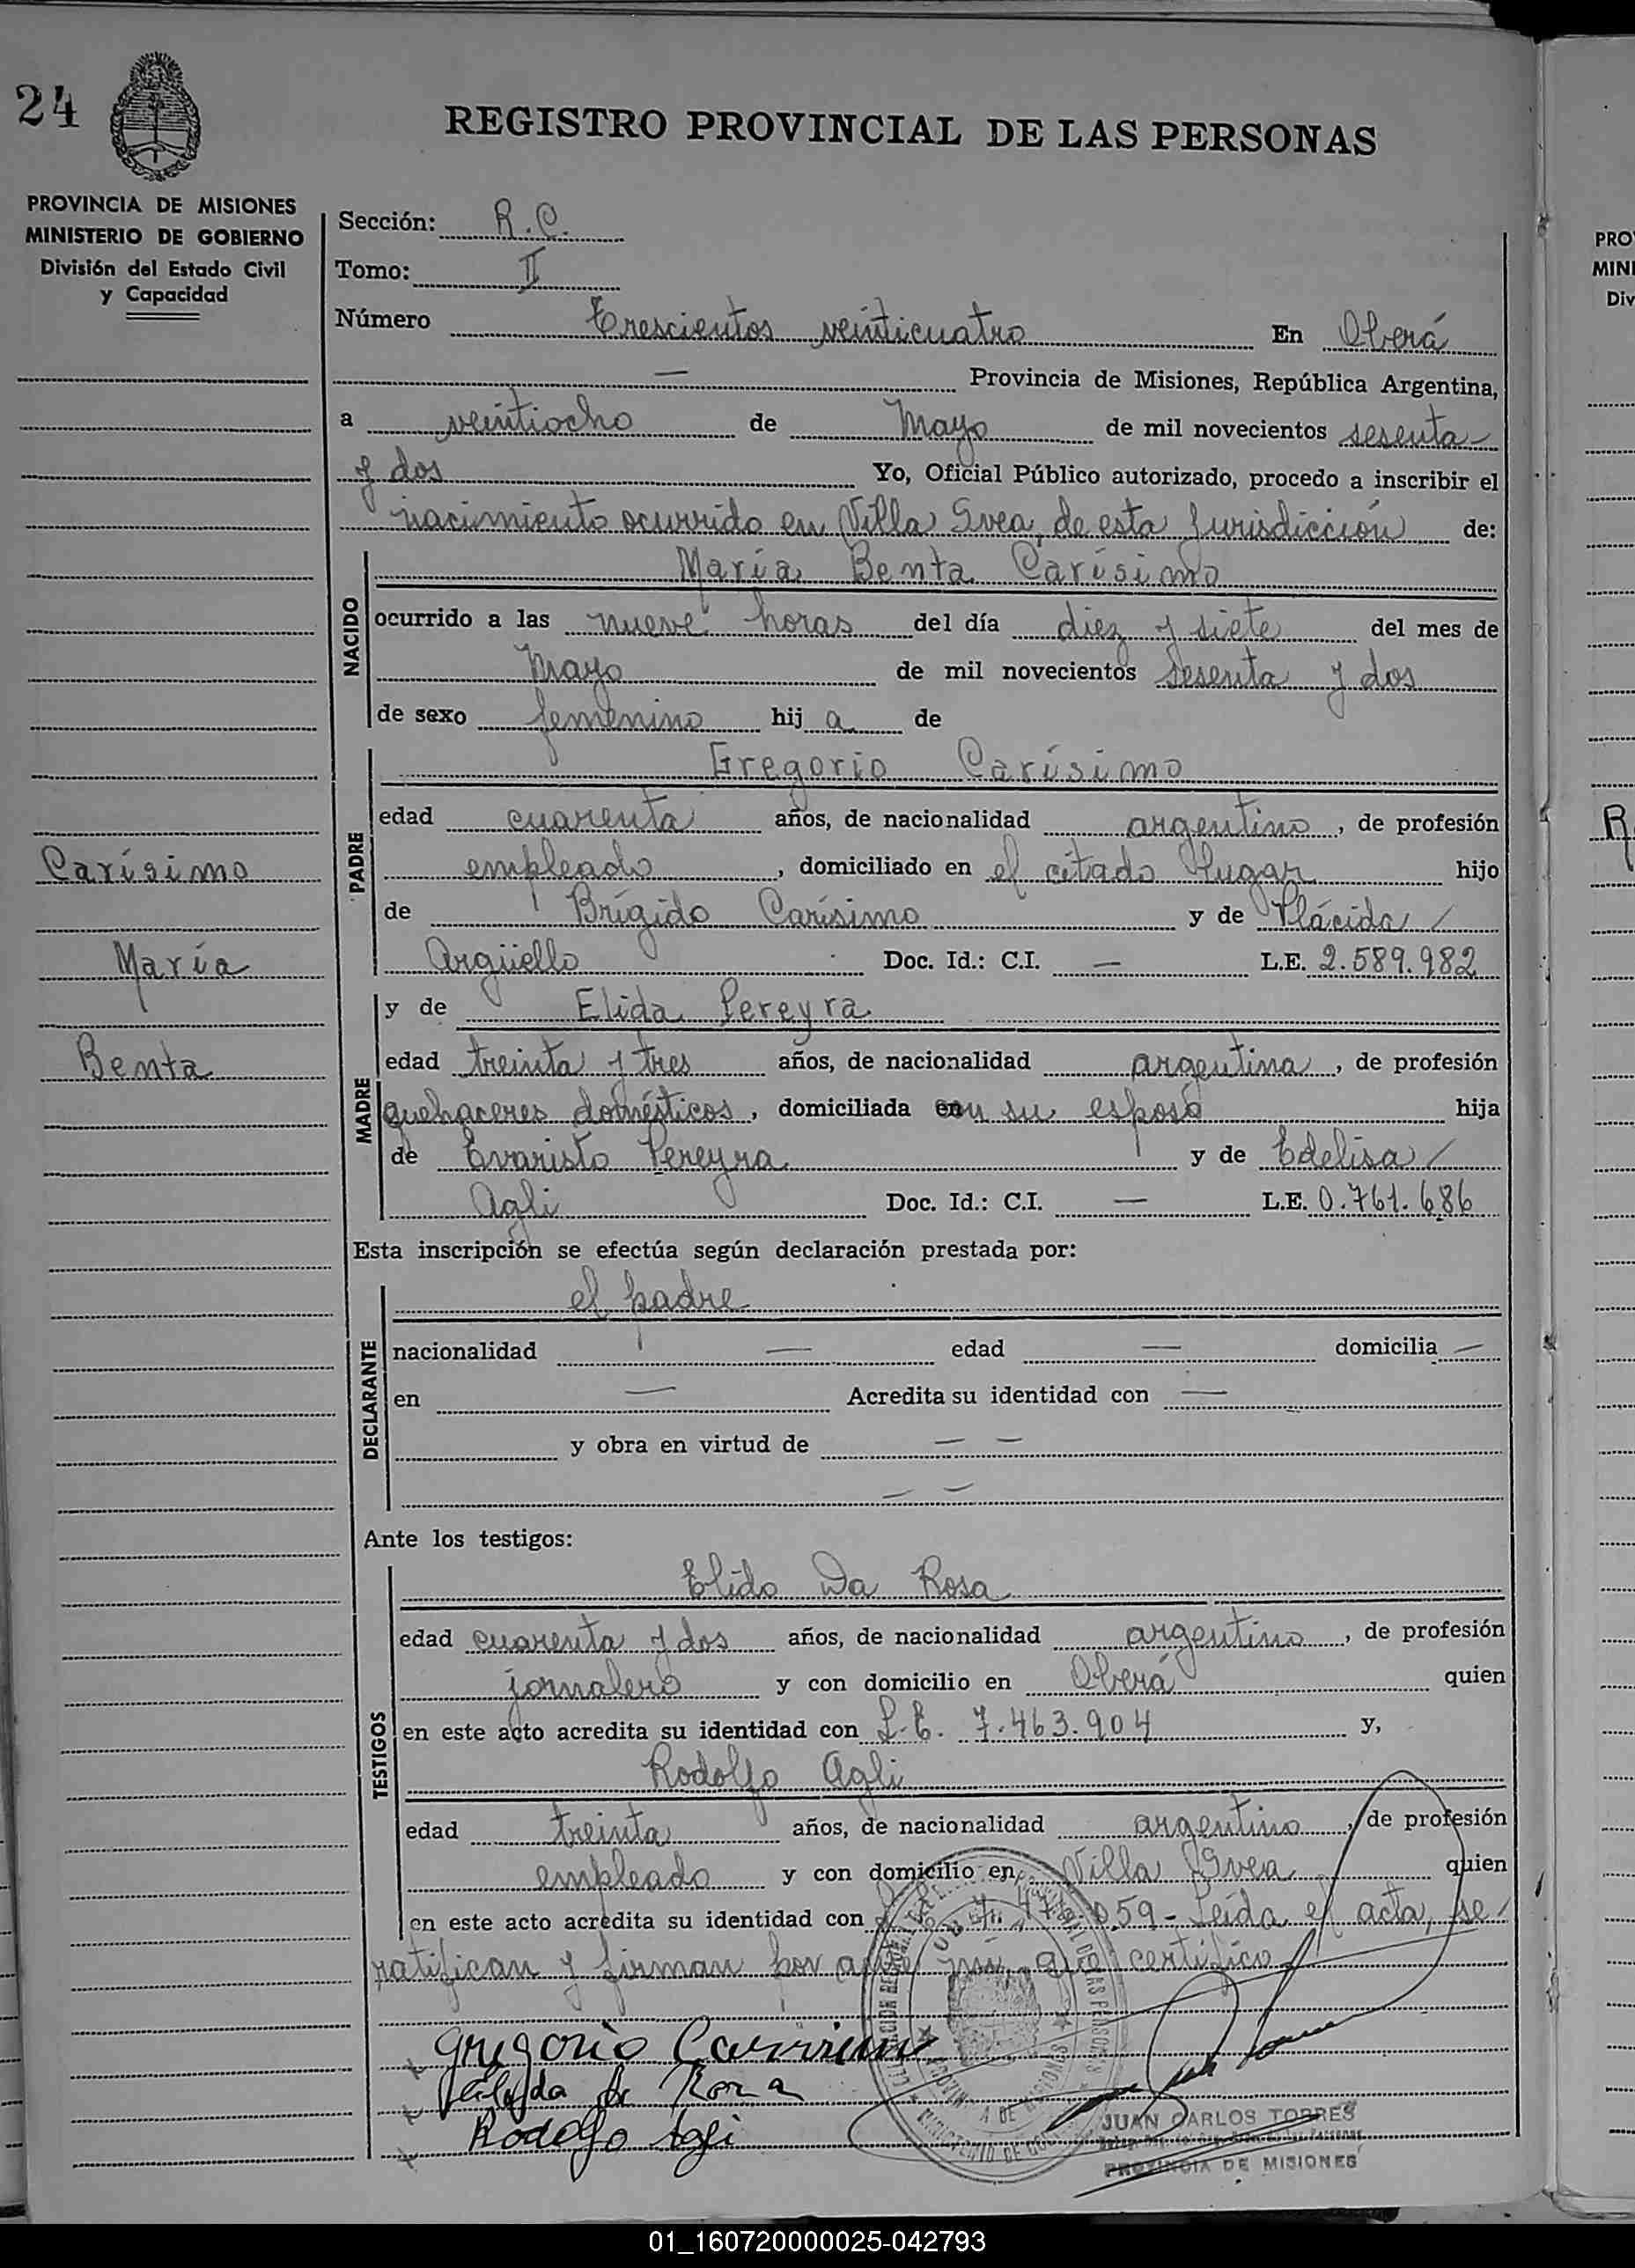 24
REGISTRO PROVINCIAL DE LAS PERSONAS
PROVINCIA DE MISIONES
MINISTERIO DE GOBIERNO
División del Estado Civil
y Capacidad
Carísimo
María
Benta
Sección: R.C.
Tomo: II
Número Trescientos veinticuatro En Oberá
— Provincia de Misiones, República Argentina,
a veintiocho de Mayo de mil novecientos sesenta
y dos Yo, Oficial Público autorizado, procedo a inscribir el
nacimiento ocurrido en Villa Svea, de esta Jurisdicción de:
NACIDO
María Benta Carísimo
ocurrido a las nueve horas del día diez y siete del mes de
Mayo de mil novecientos sesenta y dos
de sexo femenino hija de
PADRE
Gregorio Carísimo
edad cuarenta años, de nacionalidad argentino, de profesión
empleado, domiciliado en el citado lugar hijo
de Brígido Carísimo y de Plácida
Argüello Doc. Id.: C.I. — L.E. 2.589.982
MADRE
y de Elida Pereyra
edad treinta y tres años, de nacionalidad argentina, de profesión
quehaceres domésticos, domiciliada con su esposo hija
de Evaristo Pereyra y de Edelisa
Agli Doc. Id.: C.I. — L.E. 0.761.686
Esta inscripción se efectúa según declaración prestada por:
DECLARANTE
el padre
nacionalidad — edad — domicilia —
en — Acredita su identidad con —
y obra en virtud de — —
— —
Ante los testigos:
TESTIGOS
Elido Da Rosa
edad cuarenta y dos años, de nacionalidad argentino, de profesión
jornalero y con domicilio en Oberá quien
en este acto acredita su identidad con L.E. 7.463.904 y,
Rodolfo Agli
edad treinta años, de nacionalidad argentino, de profesión
empleado y con domicilio en Villa Svea quien
en este acto acredita su identidad con 059- Leída el acta, se
ratifican y firman por ante mí, que certifico
Gregorio Carisimo
da Rosa
Rodolfo Agli
JUAN CARLOS TORRES
PROVINCIA DE MISIONES
PRO
MINI
Div
R
01_160720000025-042793